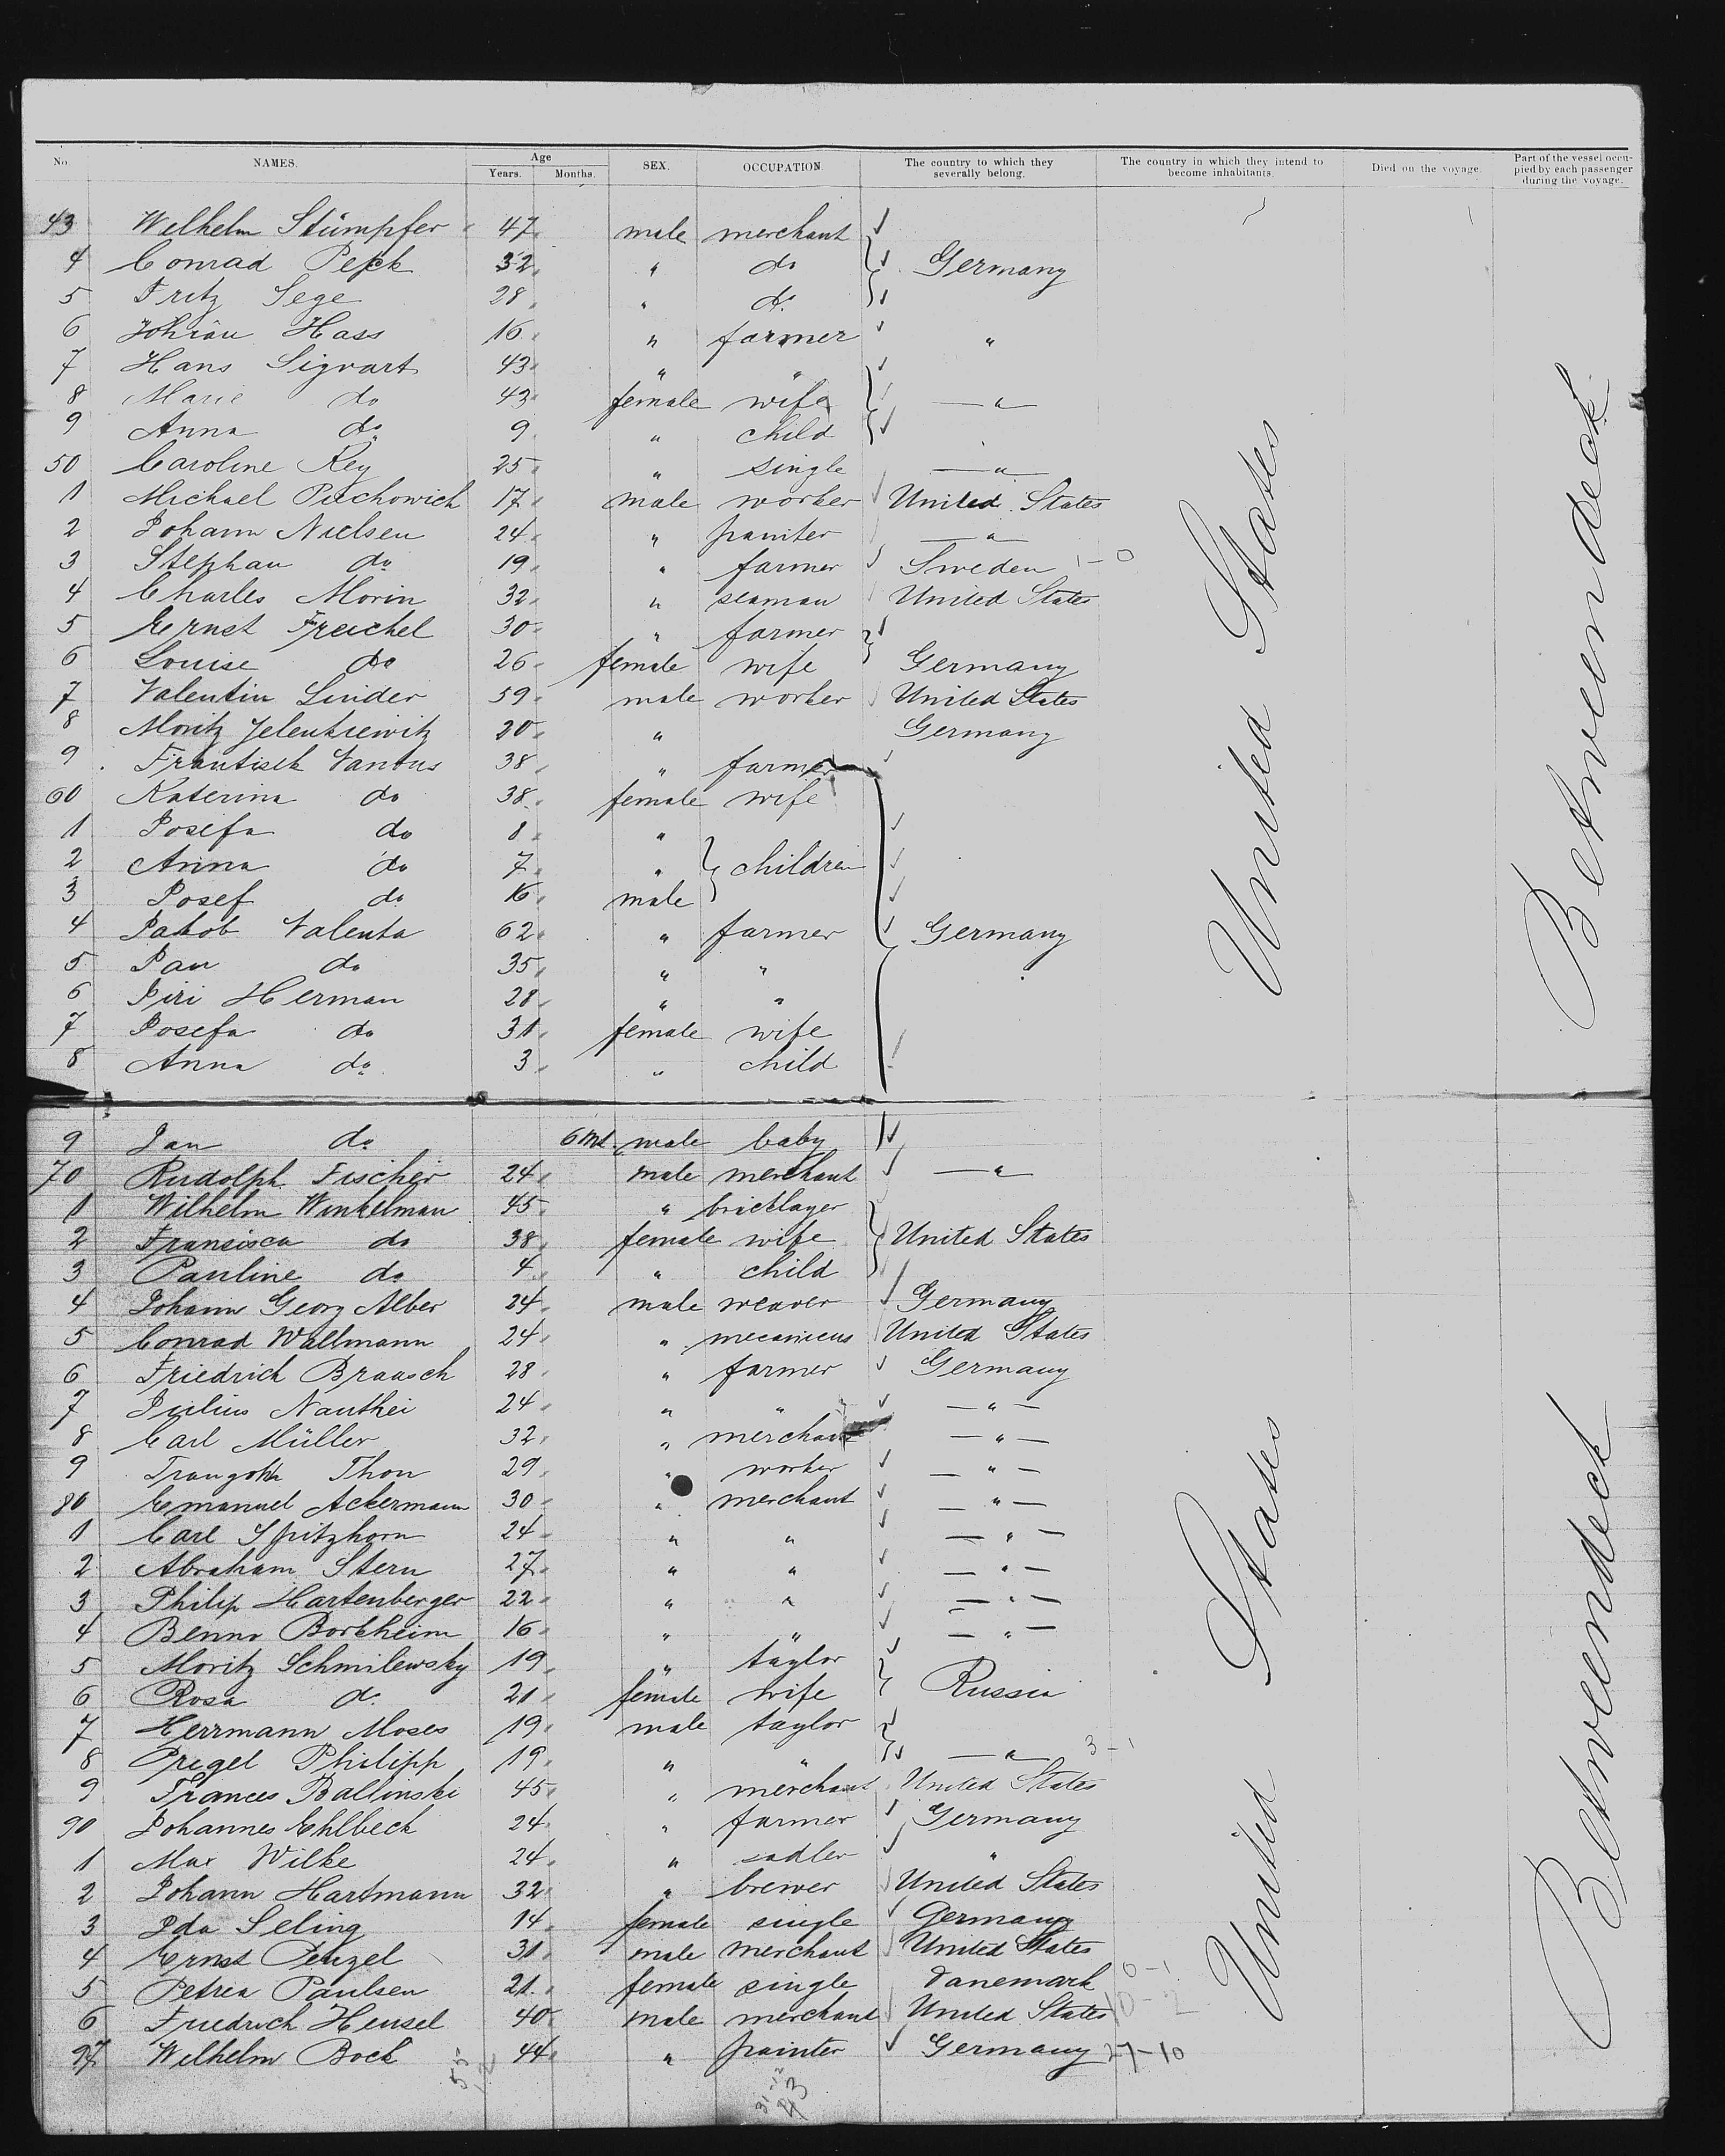 No. NAMES. Age Years. Months. SEX. OCCUPATION. The country to which they severally belong. The country in which they intend to become inhabitants. Died on the voyage. Part of the vessel occupied by each passenger during the voyage.
43 Wilhelm Stümpfer 47 male merchant
4 Conrad Peck 32 " do Germany
5 Fritz Sege 28 " do
6 Hass 16 " farmer "
7 Hans Sigvart 43 " "
8 Marie do 43 female wife — " —
9 Anna do 9 " child
50 Caroline Key 25 " single — " —
1 Michael Puchowich 17 male worker United States
2 Johann Nielsen 24 " painter — " —
3 Stephan do 19 " farmer Sweden 1-0
4 Charles Morin 32 " seaman United States
5 Ernst 30 " farmer
6 Louise do 26 female wife Germany
7 Valentin Linder 59 male worker United States
8 Moritz Jelenkiewitz 20 " Germany
9 Frantisek Vantus 38 " farmer
60 Katerina do 38 female wife
1 Josefa do 8 "
2 Anna do 7 " children
3 Josef do 16 male
4 Jakob Valenta 62 " farmer Germany
5 Jan do 35 " "
6 Jiri Herman 28 " "
7 Josefa do 31 female wife
8 Anna do 3 " child
United States
Betweendeck
9 Jan do 6 Mt. male baby
70 Rudolph Fischer 24 male merchant — " —
1 Wilhelm Winkelman 45 " bricklayer
2 Fransisca do 38 female wife United States
3 Pauline do 4 " child
4 Johann Georg Alber 24 male weaver Germany
5 Conrad Wallmann 24 " mecanicus United States
6 Friedrich Braasch 28 " farmer Germany
7 Julius Nauthei 24 " " — " —
8 Carl Müller 32 " merchant — " —
9 Thon 29 " worker — " —
80 Emanuel Ackermann 30 " merchant — " —
1 Carl Spitzhorn 24 " " — " —
2 Abraham Stern 27 " " — " —
3 Philip Hartenberger 22 " " — " —
4 Benno Borkheim 16 " " — " —
5 Moritz Schmilewsky 19 " taylor
6 Rosa do 21 female wife Russia
7 Herrmann Moses 19 male taylor
8 Pregel Philipp 19 " " — " — 3-1
9 Frances Ballinski 45 " merchant United States
90 Johannes Ehlbeck 24 " farmer Germany
1 Max Wilke 24 " sadler "
2 Johann Hartmann 32 " brewer United States
3 Ida Seling 14 female single Germany
4 Ernst Penzel 31 male merchant United States
5 Petrea Paulsen 21 female single Danemark 0-1
6 Friedrich Hensel 40 male merchant United States 10-2
97 Wilhelm Bock 44 " painter Germany 27-10
United States
Betweendeck